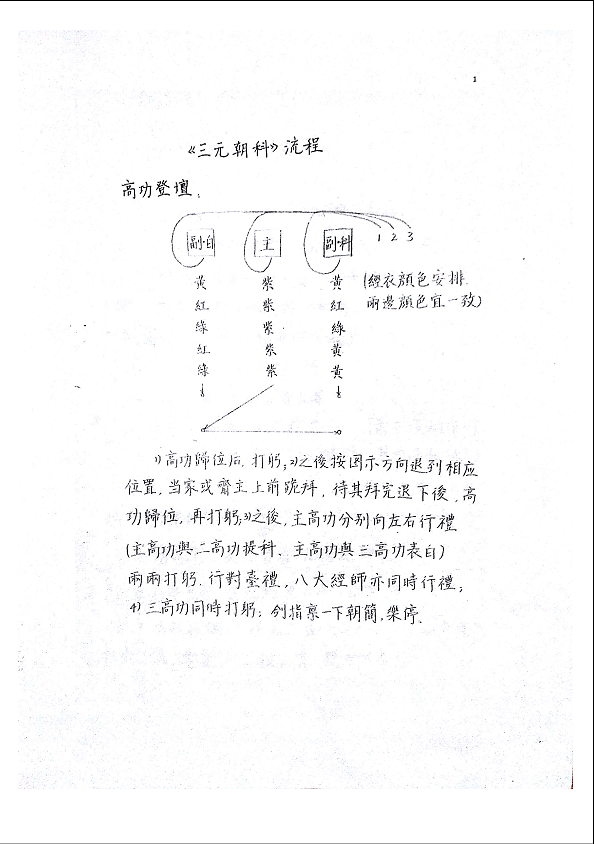 1
《三元朝科》流程
高功登壇。
1 2 3
副白 主 副科
黃 紫 黃 (經衣顏色安排.
紅 紫 紅 兩邊顏色宜一致)
綠 紫 綠
紅 紫 黃
綠 紫 黃
1)高功歸位后.打躬;2)之後按図示方向退到相应
位置,当家或齋主上前跪拜,待其拜完退下後,高
功歸位,再打躬;3)之後,主高功分别向左右行禮
(主高功與二高功提科、主高功與三高功表白)
兩兩打躬.行對臺禮,八大經師亦同時行禮;
4)三高功同時打躬;例指禀一下朝簡,樂停、